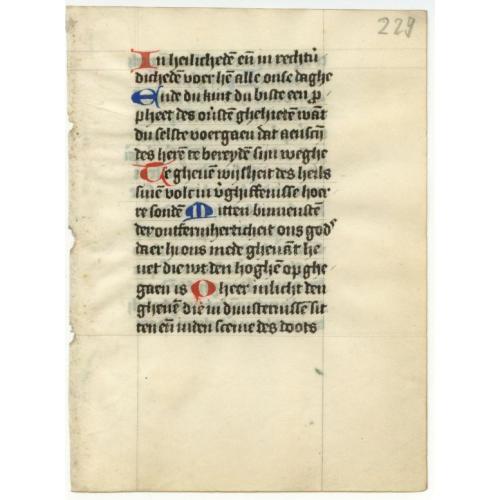 229
In heilichedē en̄ in rechtū
dichedē voer hē alle onse daghe
Ende du kint du biste een p̄
pheet des ou̓sten ghehietē wāt
du selste voergaen dat aenscij
des herē te bereyden sijn weghe
Te gheuen wijsheit des heils
sinē volc in v̓ghiffenisse hoer
re sondē Mitten binnenstē
der ontfermherticheit ons gods
daer hi ons mede gheuāt he
uet die wt den hoghē op ghe
gaen is O heer inlicht den
ghenē die in duusternisse sit
ten en̄ inden sceme des doots